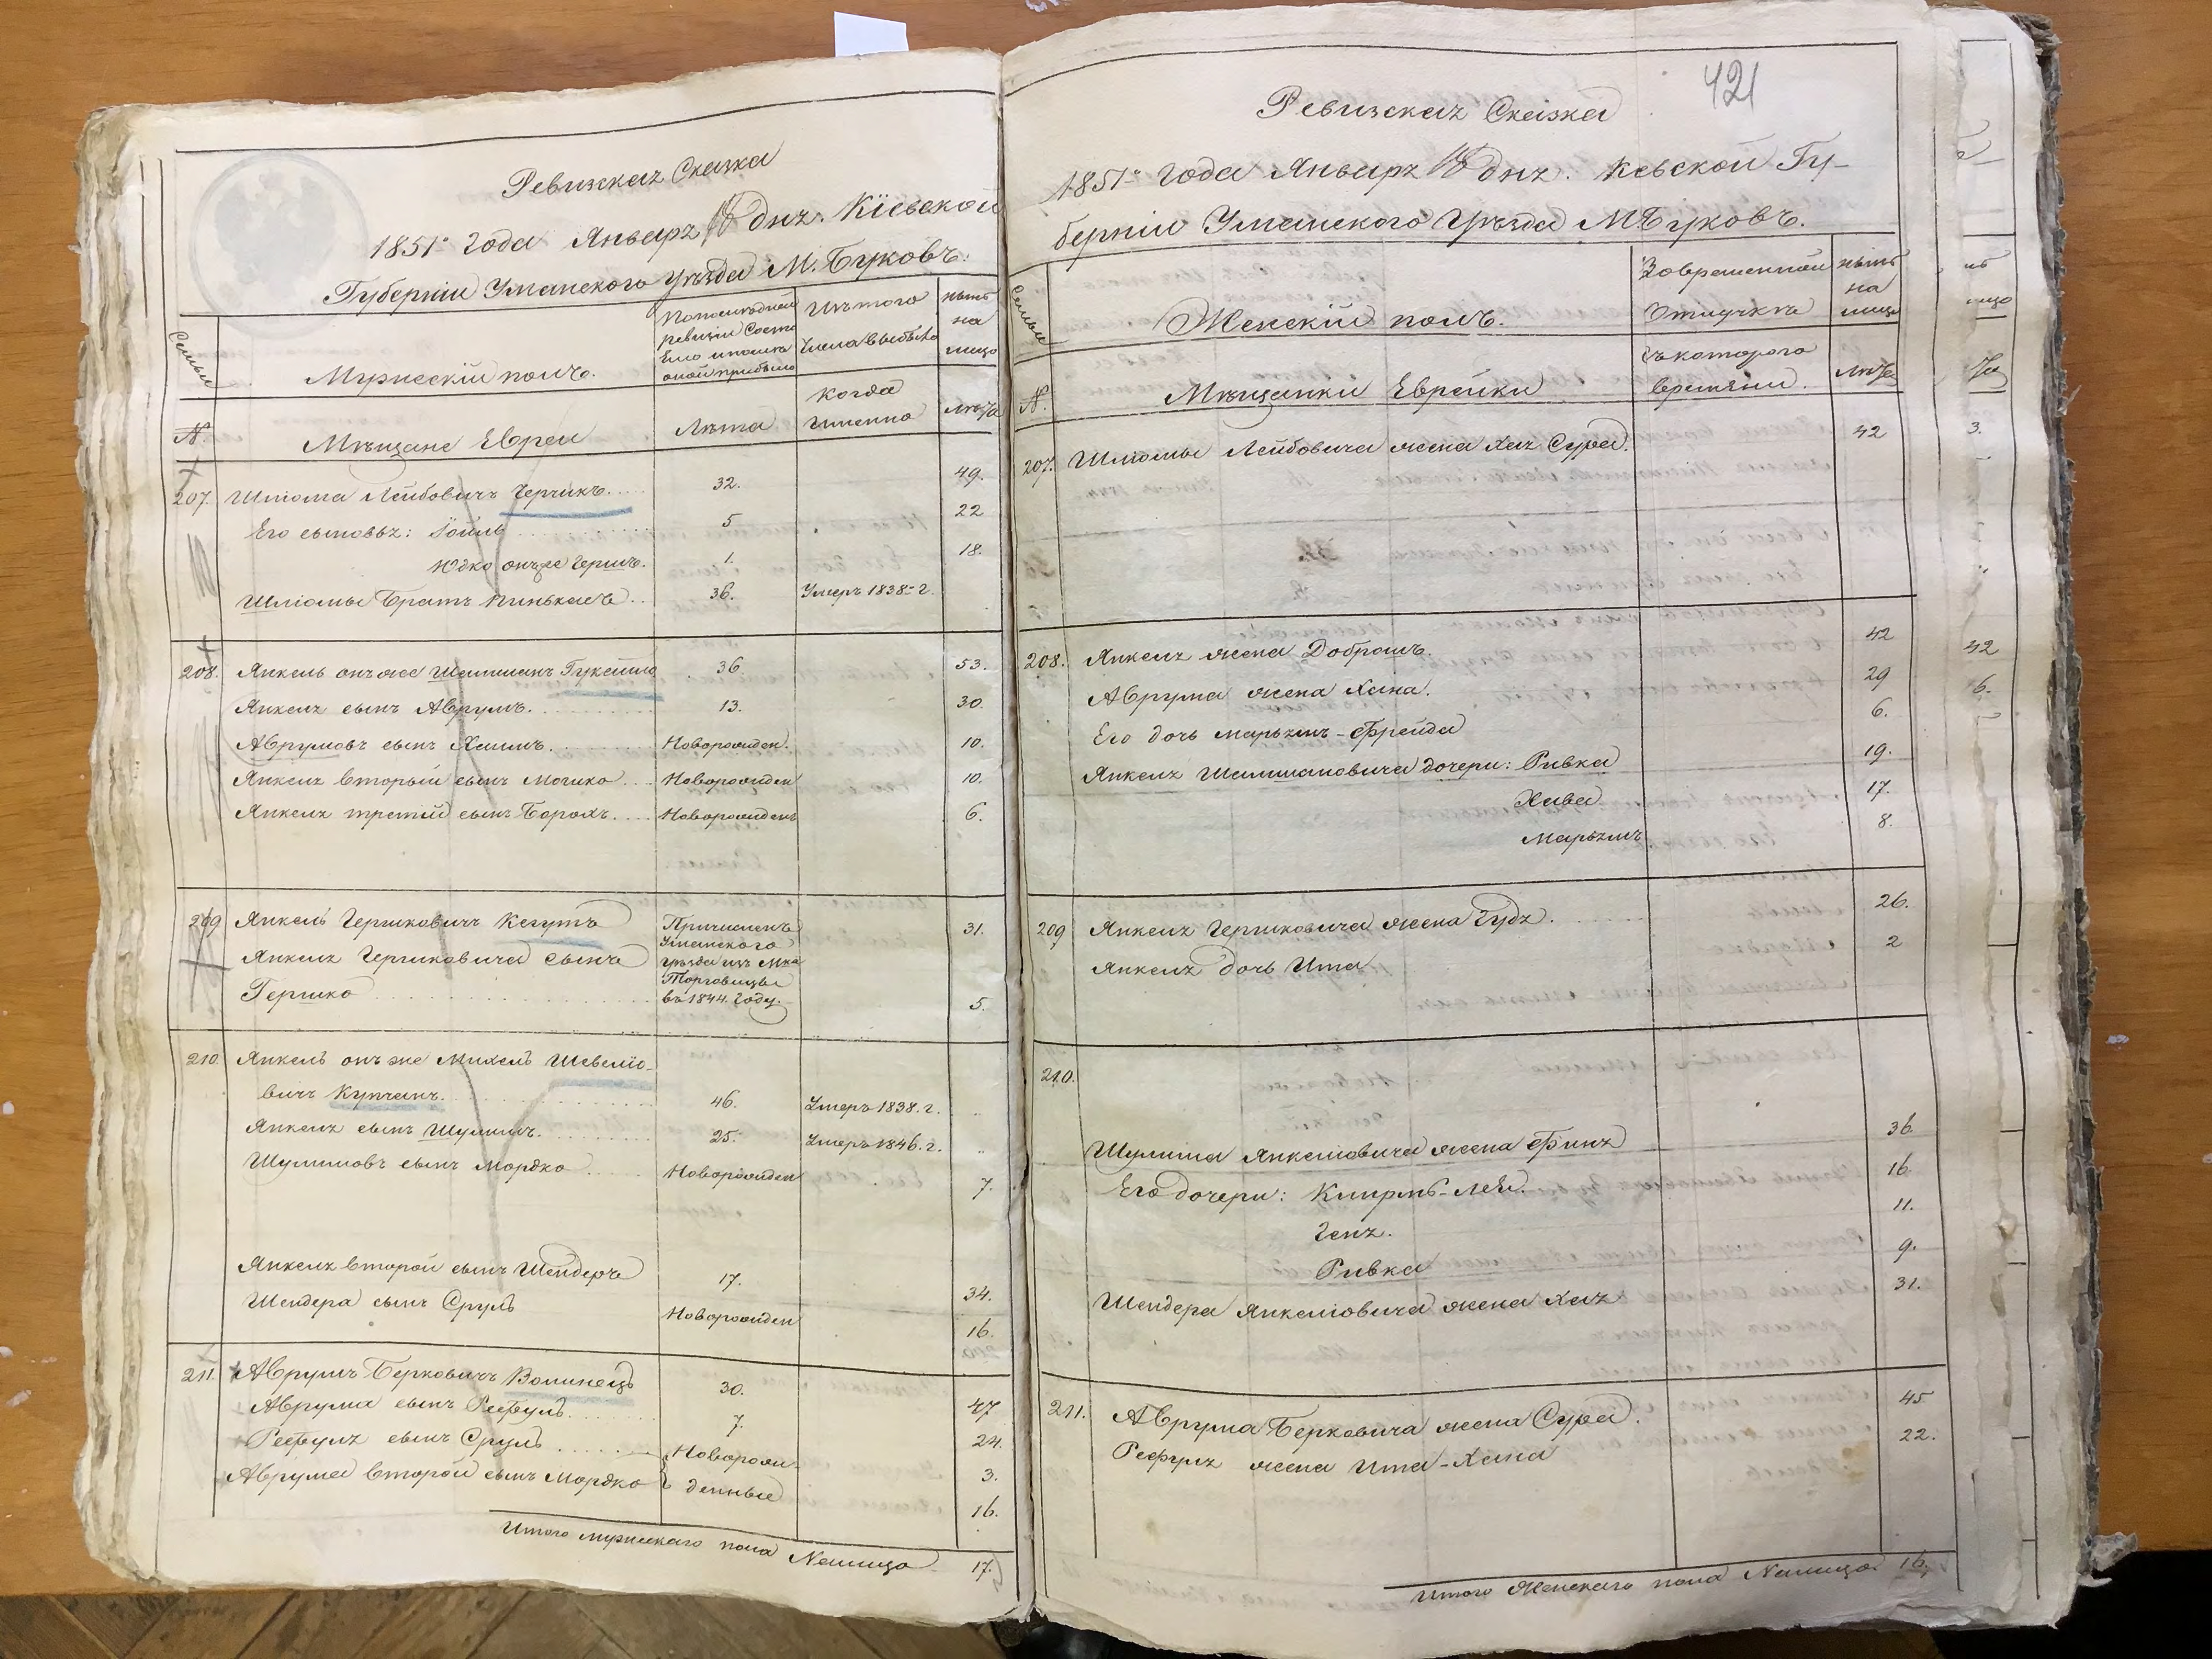 Ревизская Сказка
1851го Года Января 18 дня. Кіевской
Губерніи Уманскаго Уѣзда М. Буковъ.
Семьи
Мужескій полъ.
По последней
ревизіи Состо
яло и после
оной прибыло
Изъ того
Числа выбыло
ныне
на
лицо
N.
Мѣщане Евреи
Лѣта
Когда
Именно
Лѣта
207. Шліома Лейбовичъ Герчикъ. 32. 49.
Его сыновья: Іойль 5 22
Юдко онъже Гершъ. 1. 18.
Шліомы Братъ Пинькасъ 36. Умеръ 1838 г.
208. Янкель онъ же Шапшанъ 36 53.
Янкеля сынъ Аврумъ. 13. 30.
Аврумовъ сынъ Хаимъ. Новорожден. 10.
Янкеля вторый сынъ Мошко Новорожден 10.
Янкеля третій сынъ Борохъ. Новорожденъ 6.
209 Янкель Гершковичъ Когутъ 31.
Янкеля Гершковича сынъ
Гершко 5.
Причисленъ
Уманского
уѣзда изъ Мка
Торговицы
въ 1844. Году.
210. Янкель онъ же Михель Шевеліо-
вичъ Купчикъ. 46. Умеръ 1838. г.
Янкеля сынъ Шулимъ. 25. Умеръ 1846. г.
Шулимовъ сынъ Мордко Новорожден 7.
Янкеля второй сынъ Шендеръ 17. 34.
Шендера сынъ Сруль Новорожден 16.
211. Аврумъ Берковичъ Волинецъ 30. 47
Аврума сынъ Рефулъ. 7. 24.
Рефула сынъ Сруль Новорож- 3.
Аврума второй сынъ Мордко денные 16.
Итого мужескаго пола Налицо 17.
421
Ревизская Сказка
1851го Года Января 18 дня. Кевской Гу-
берніи Уманского Уѣзда М. Буковъ.
Семьи
Женскій полъ.
Во временной
Отлучкѣ
ныне
на
лицо
N.
Мѣщанки Еврейки
Съ которого
времени.
Лѣта
207. Шліомы Лейбовича жена Хая Сура. 42
208. Янкеля жена Доброшъ. 42
Аврума жена Хана. 29
Его дочь Марьямъ-Фрейда 6.
Янкеля Шапшановича дочери: Ривка 19.
Хава 17.
Марьямъ 8.
209 Янкеля Гершковича жена Гудя. 26.
Янкеля дочь Ита 2
210.
Шулима Янкеліовича жена Финя 36
Его дочери: 16
Геня. 11.
Ривка 9.
Шендера Янкеліовича жена Хая 31.
211. Аврума Берковича жена Сура. 45
Рефула жена Ита-Хана 22.
Итого Женскаго пола Налицо 16.
3.
42
6.